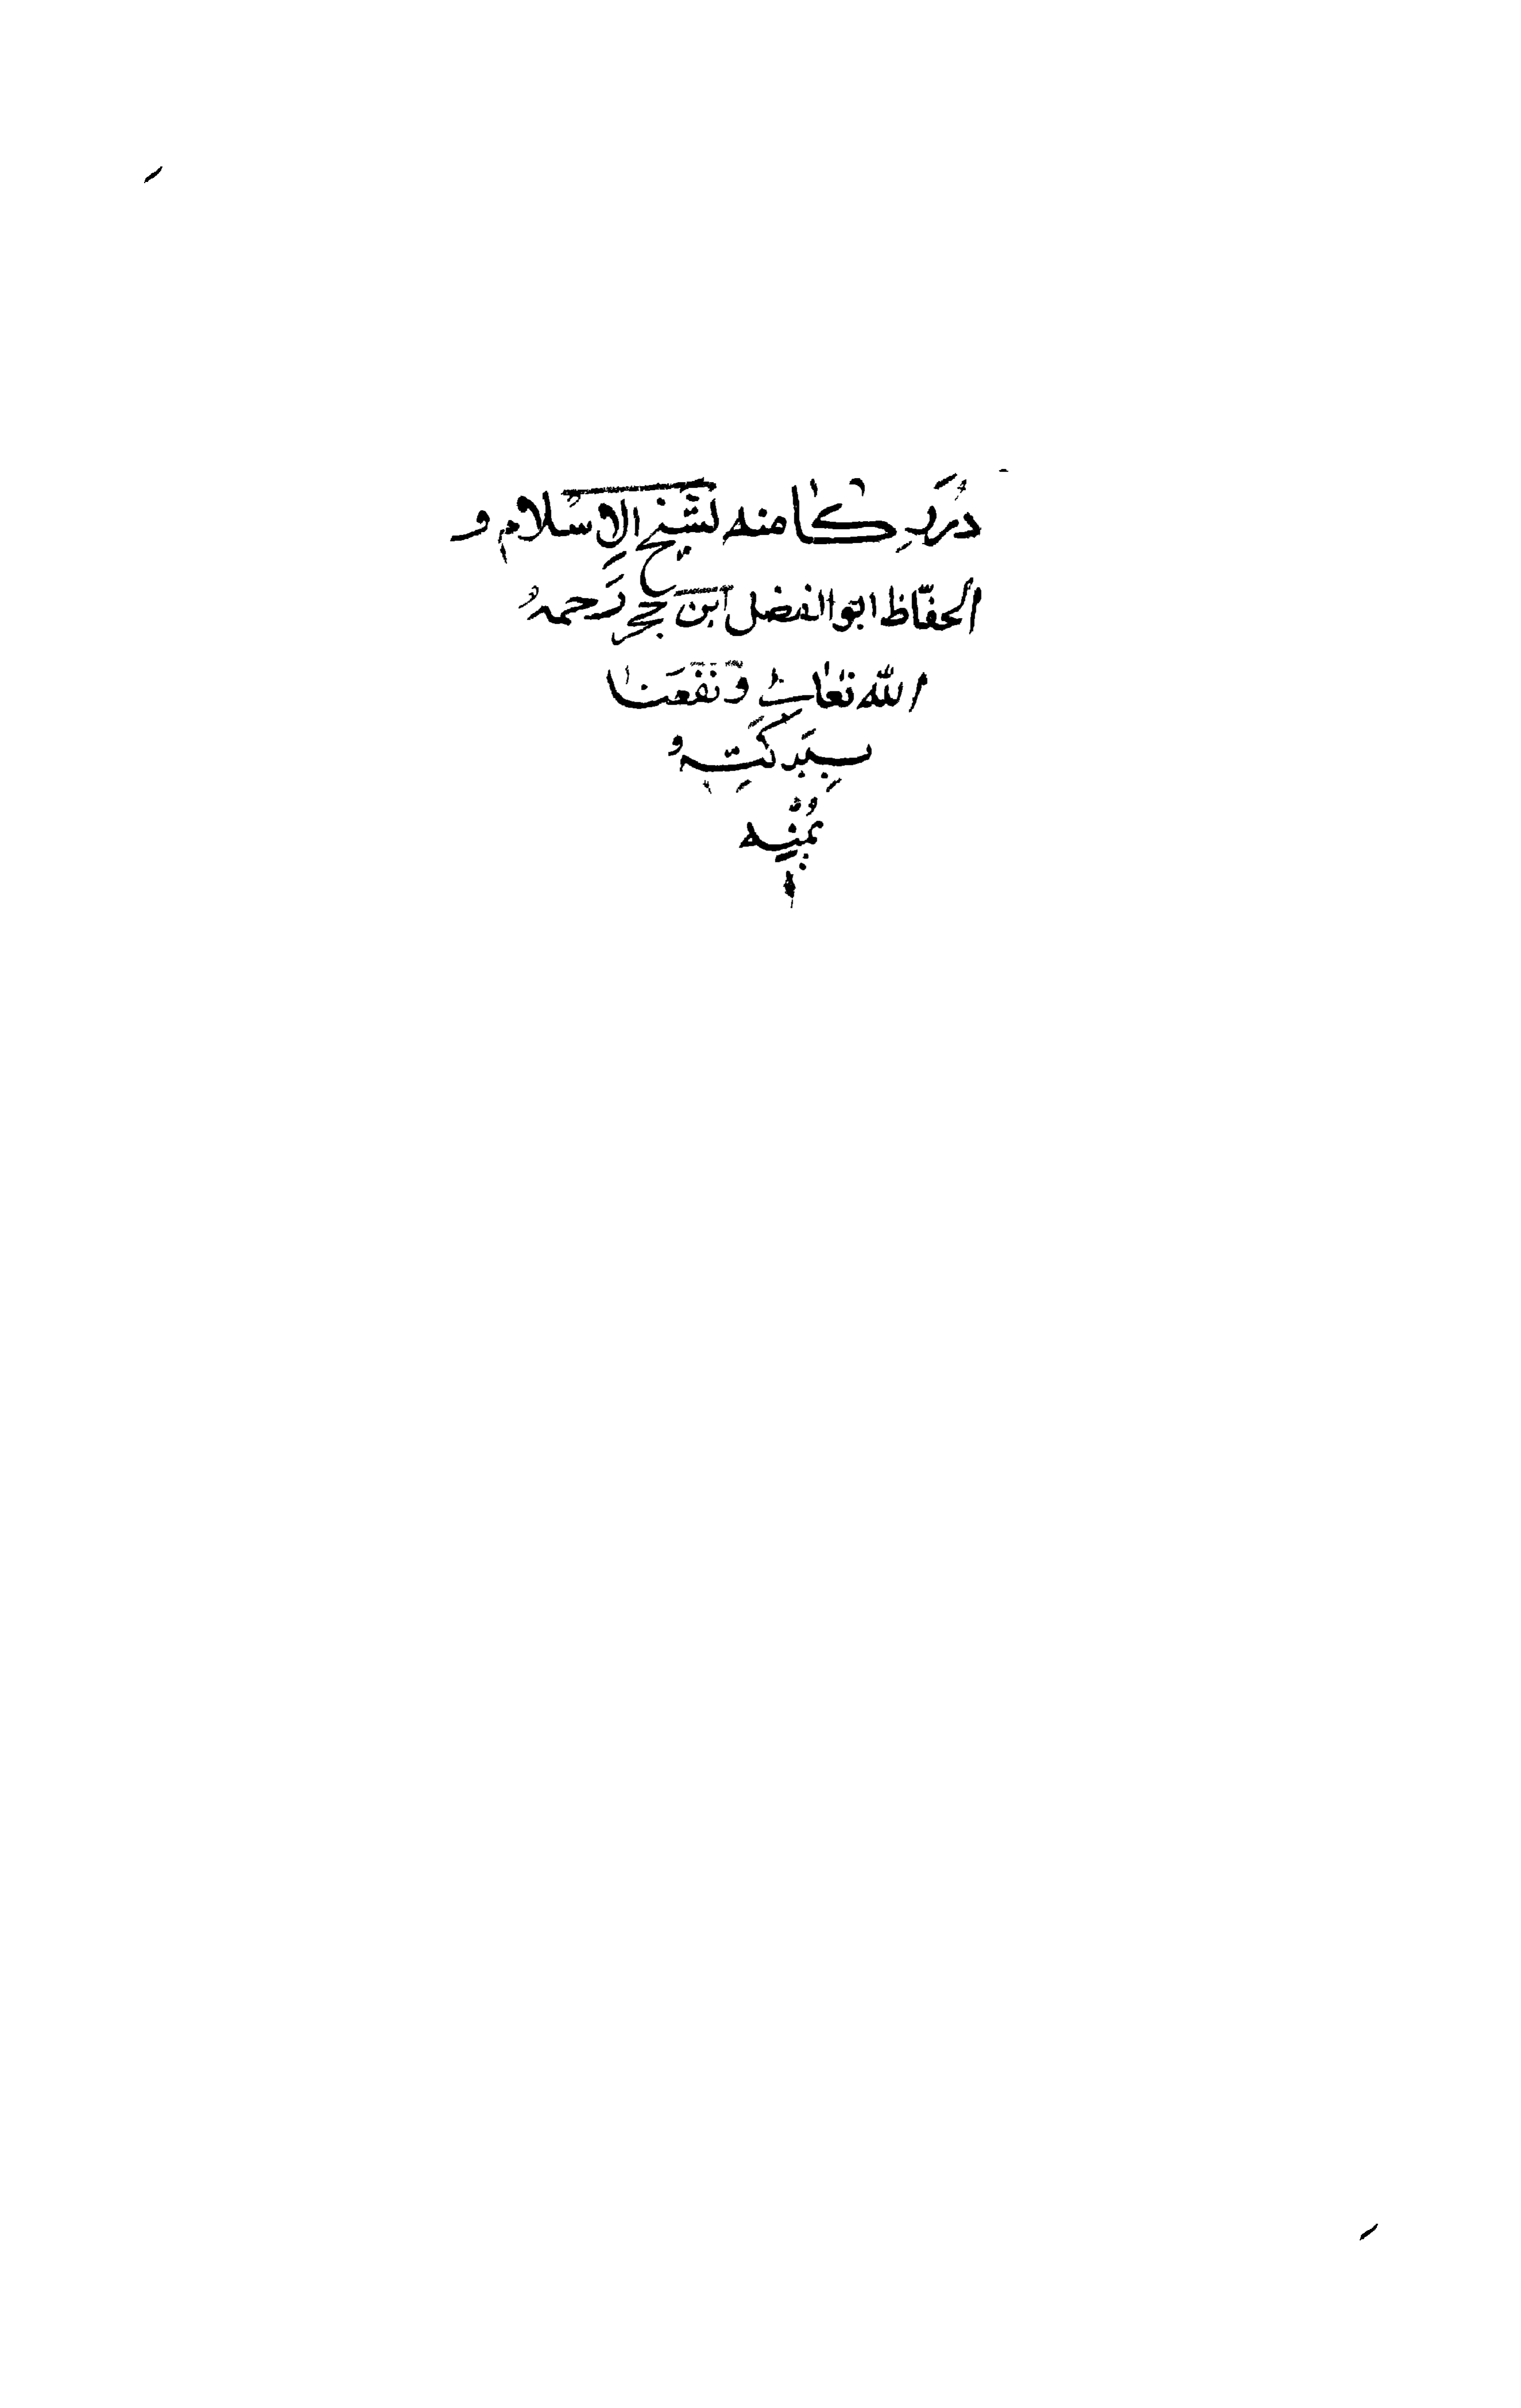 دُرَرِ كامنه لشيخ الاسلام و
الحفّاظ ابو الفضل ابن حجر رحمه
الله تعالى ونفعنا
ببركته و
بمنه